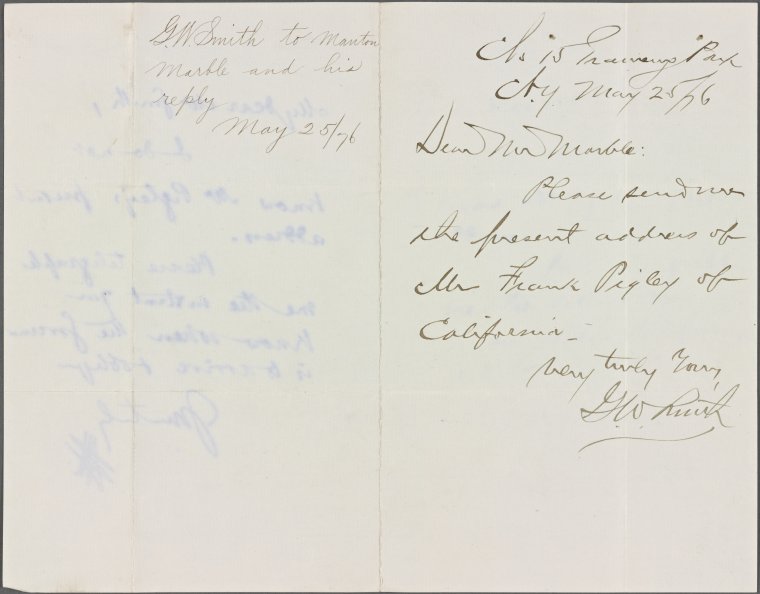 G.W. Smith to Manton
Marble and his
reply
May 25/76
No 15 Gramercy Park
N.Y. May 25/76
Dear Mr Marble:
Please send me
the present address of
Mr Frank Pigley of
California –
Very truly Yours,
G.W. Smith
My dear Smith,
I do not
know Mr Pigley's present
address.
Please telegraph
me the instant you
know when the
is to arrive